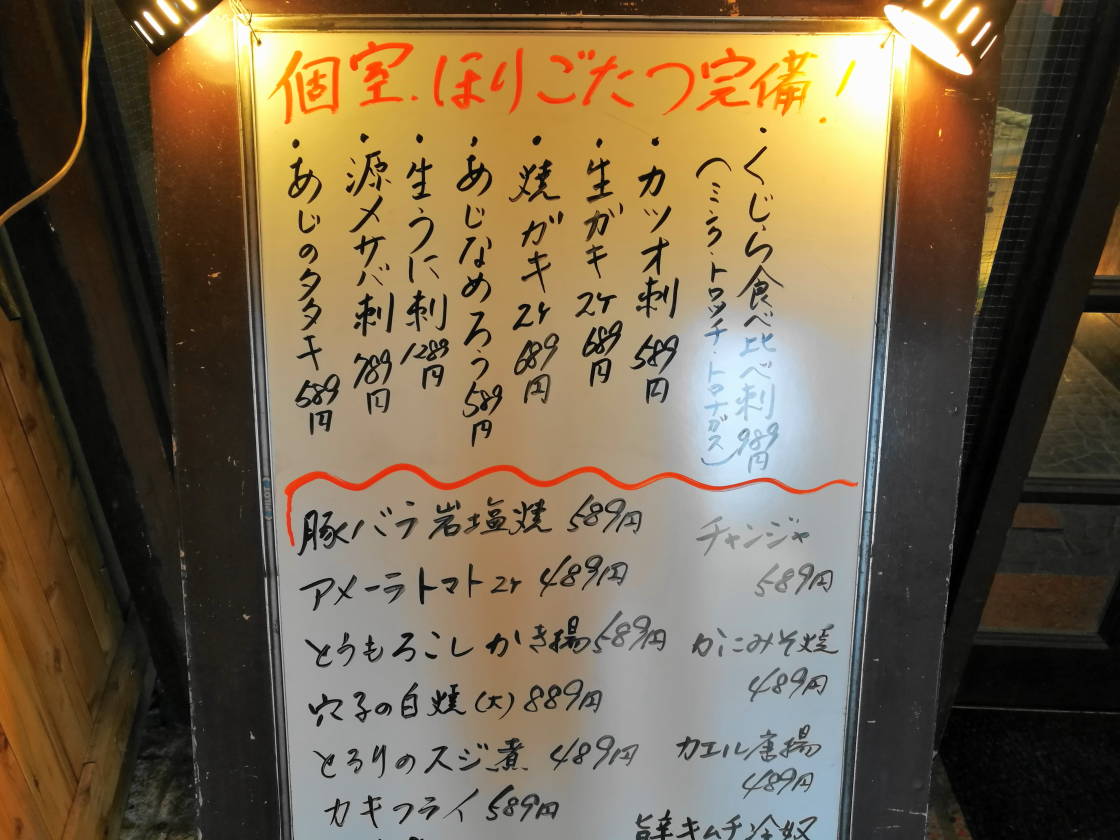 個室.ほりごたつ完備!
・くじら食べ比べ刺 989円
(ミンク・トロッチ・トロナガス)
・カツオ刺 589円
・生ガキ2ケ 689円
・焼ガキ2ケ 689円
・あじなめろう 589円
・生うに刺 1289円
・源メサバ刺 789円
・あじのタタキ 589円
豚バラ岩塩焼 589円
チャンジャ
589円
アメーラトマト2ケ 489円
とうもろこしかき揚 589円
かにみそ焼
489円
穴子の白焼(大) 889円
とろりのスジ煮 489円
カエル唐揚
489円
カキフライ 589円
旨辛キムチ冷奴